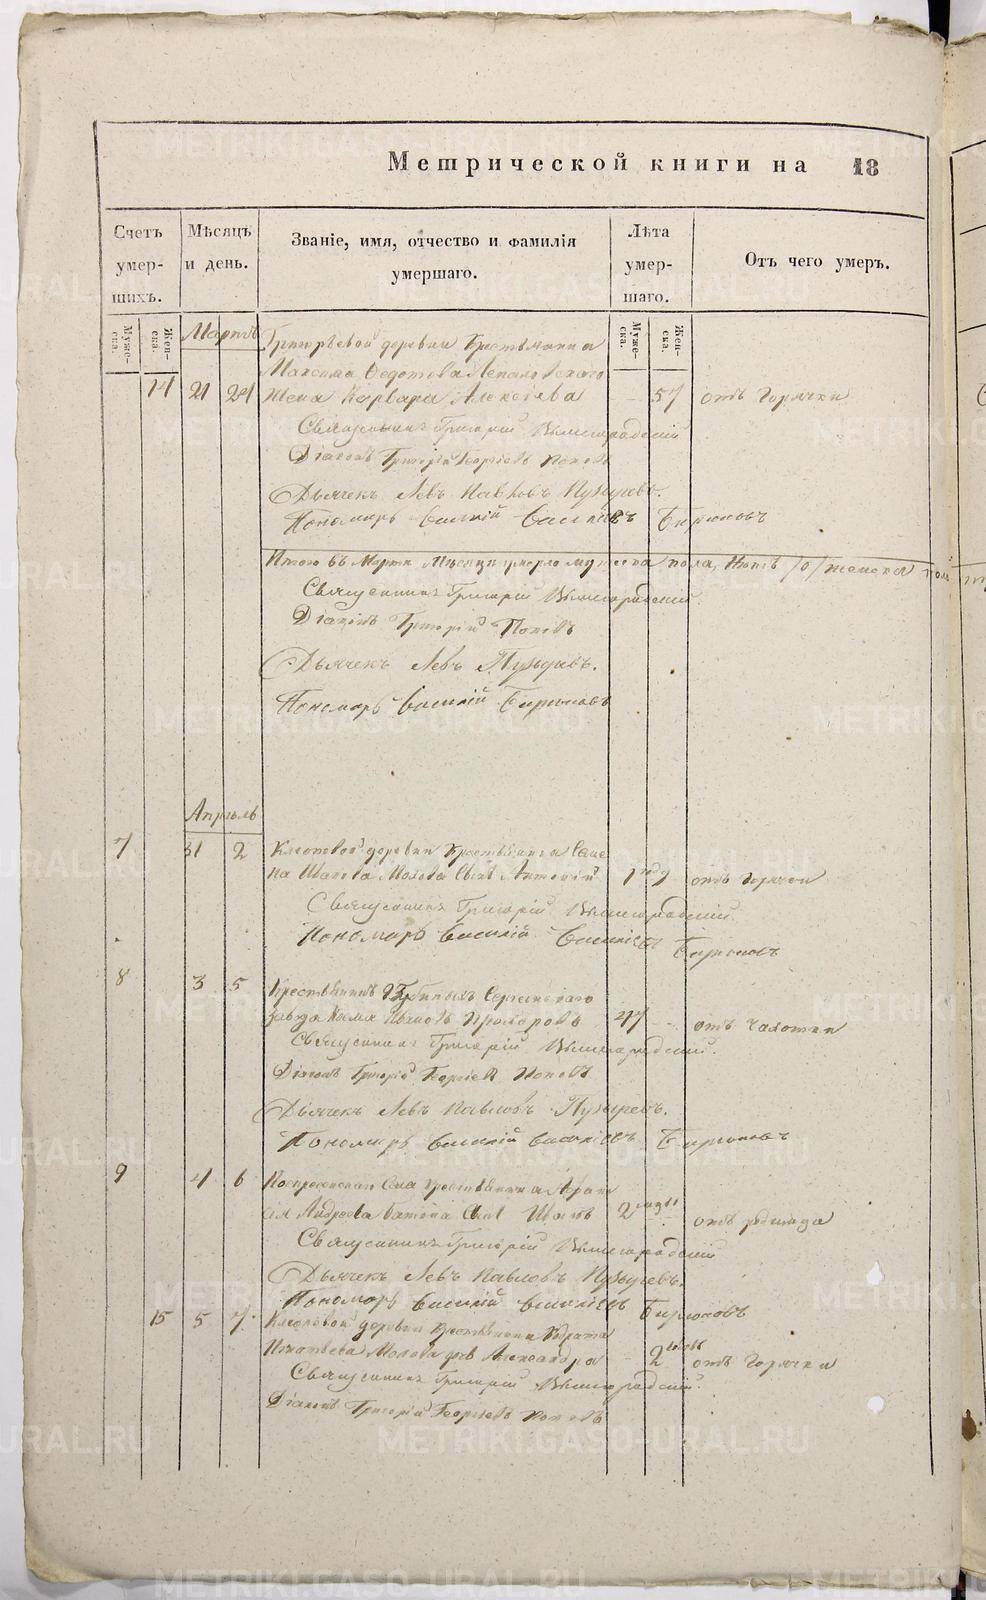 Метрической книги на 18
Счетъ умер- шихъ.
Мѣсяцъ и день.
Званіе, имя, отчество и фамилія умершаго.
Лѣта умер- шаго.
Отъ чего умеръ.
Муже- ска.
Жен- ска.
Муже- ска.
Жен- ска.
Мартъ
Григорьевой деревни Крестьянина
Максима Федотова
14 21 24 жена Варвара Алексѣева 57 отъ горячки
Священникъ Григорій Вышегородскій
Діаконъ Григорій Георгіевъ Поповъ
Дьячекъ Левъ Павловъ Пузыревъ.
Пономарь Василій Васильевъ Бирюковъ
Итого въ Мартѣ Мѣсяцѣ умерло мужеска пола, женска
Священникъ Григорій Вышегородскій.
Діаконъ Григорій Поповъ
Дьячекъ Левъ Пузыревъ.
Пономарь Василій Бирюковъ
Апрѣль
7 31 2 деревни Крестьянина
сынъ 1 отъ горячки
Священникъ Григорій Вышегородскій.
Пономарь Василій Васильевъ Бирюковъ
8 3 5 Крестьянинъ
завода Ивановъ Прохоровъ 47 отъ чахотки
Священникъ Григорій Вышегородскій.
Діаконъ Григорій Георгіевъ Поповъ
Дьячекъ Левъ Павловъ Пузыревъ.
Пономарь Василій Васильевъ Бирюковъ
9 4 6 Воскресенскаго Села крестьянина
Андреева сынъ Иванъ 2 отъ родимца
Священникъ Григорій Вышегородскій
Дьячекъ Левъ Павловъ Пузыревъ.
Пономарь Василій Васильевъ Бирюковъ
15 5 7. деревни крестьянина
Александра 2 отъ горячки
Священникъ Григорій Вышегородскій.
Діаконъ Григорій Георгіевъ Поповъ
METRIKI.GASO-URAL.RU